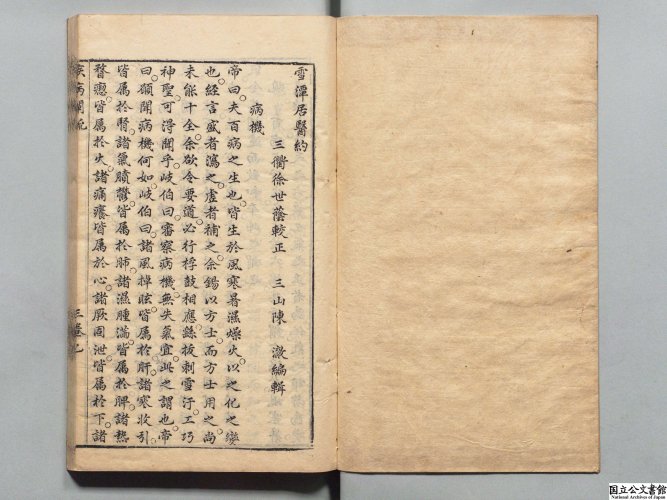 雪潭居醫約
三衢徐世蔭較正　三山陳　澈編輯
病機
帝曰夫百病之生也皆生於風寒暑濕燥火以之化之變
也經言盛者瀉之虛者補之余錫以方士而方士用之尚
未能十全余欲令要道必行桴鼓相應繇拔刺雪汙工巧
神聖可得聞乎岐伯曰審察病機無失氣宜此之謂也帝
曰願聞病機何如岐伯曰諸風掉眩皆屬於肝諸寒收引
皆屬於腎諸氣膹鬱皆屬於肺諸濕腫滿皆屬於脾諸熱
瞀瘛皆屬於火諸痛癢皆屬於心諸厥固泄皆屬於下諸
疾病闡疏
三卷
国立公文書館
National Archives of Japan